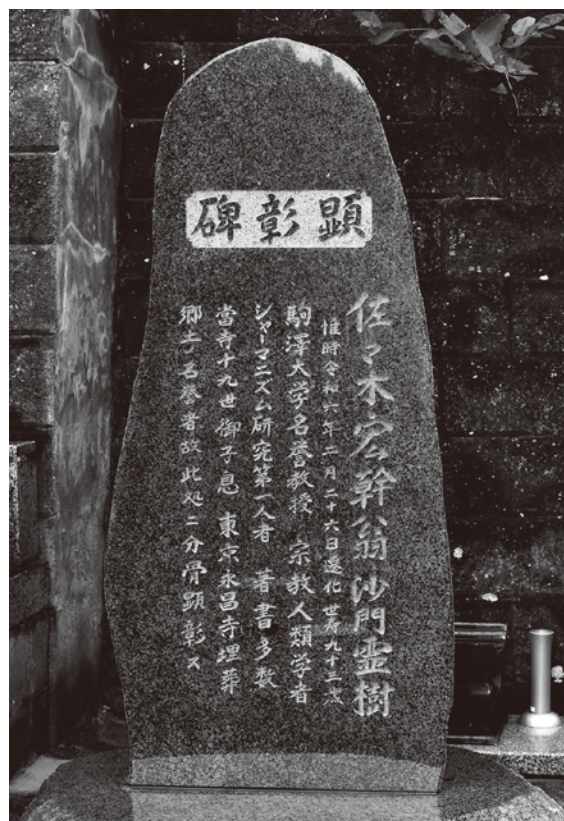 顕彰碑
佐々木宏幹翁沙門霊樹
惟時令和六年二月二十六日遷化 世寿九十三歳
駒澤大学名誉教授 宗教人類学者
シャーマニズム研究第一人者 著書多数
當寺十九世御子息 東京永昌寺埋葬
郷土ノ名誉者故此処ニ分骨顕彰ス